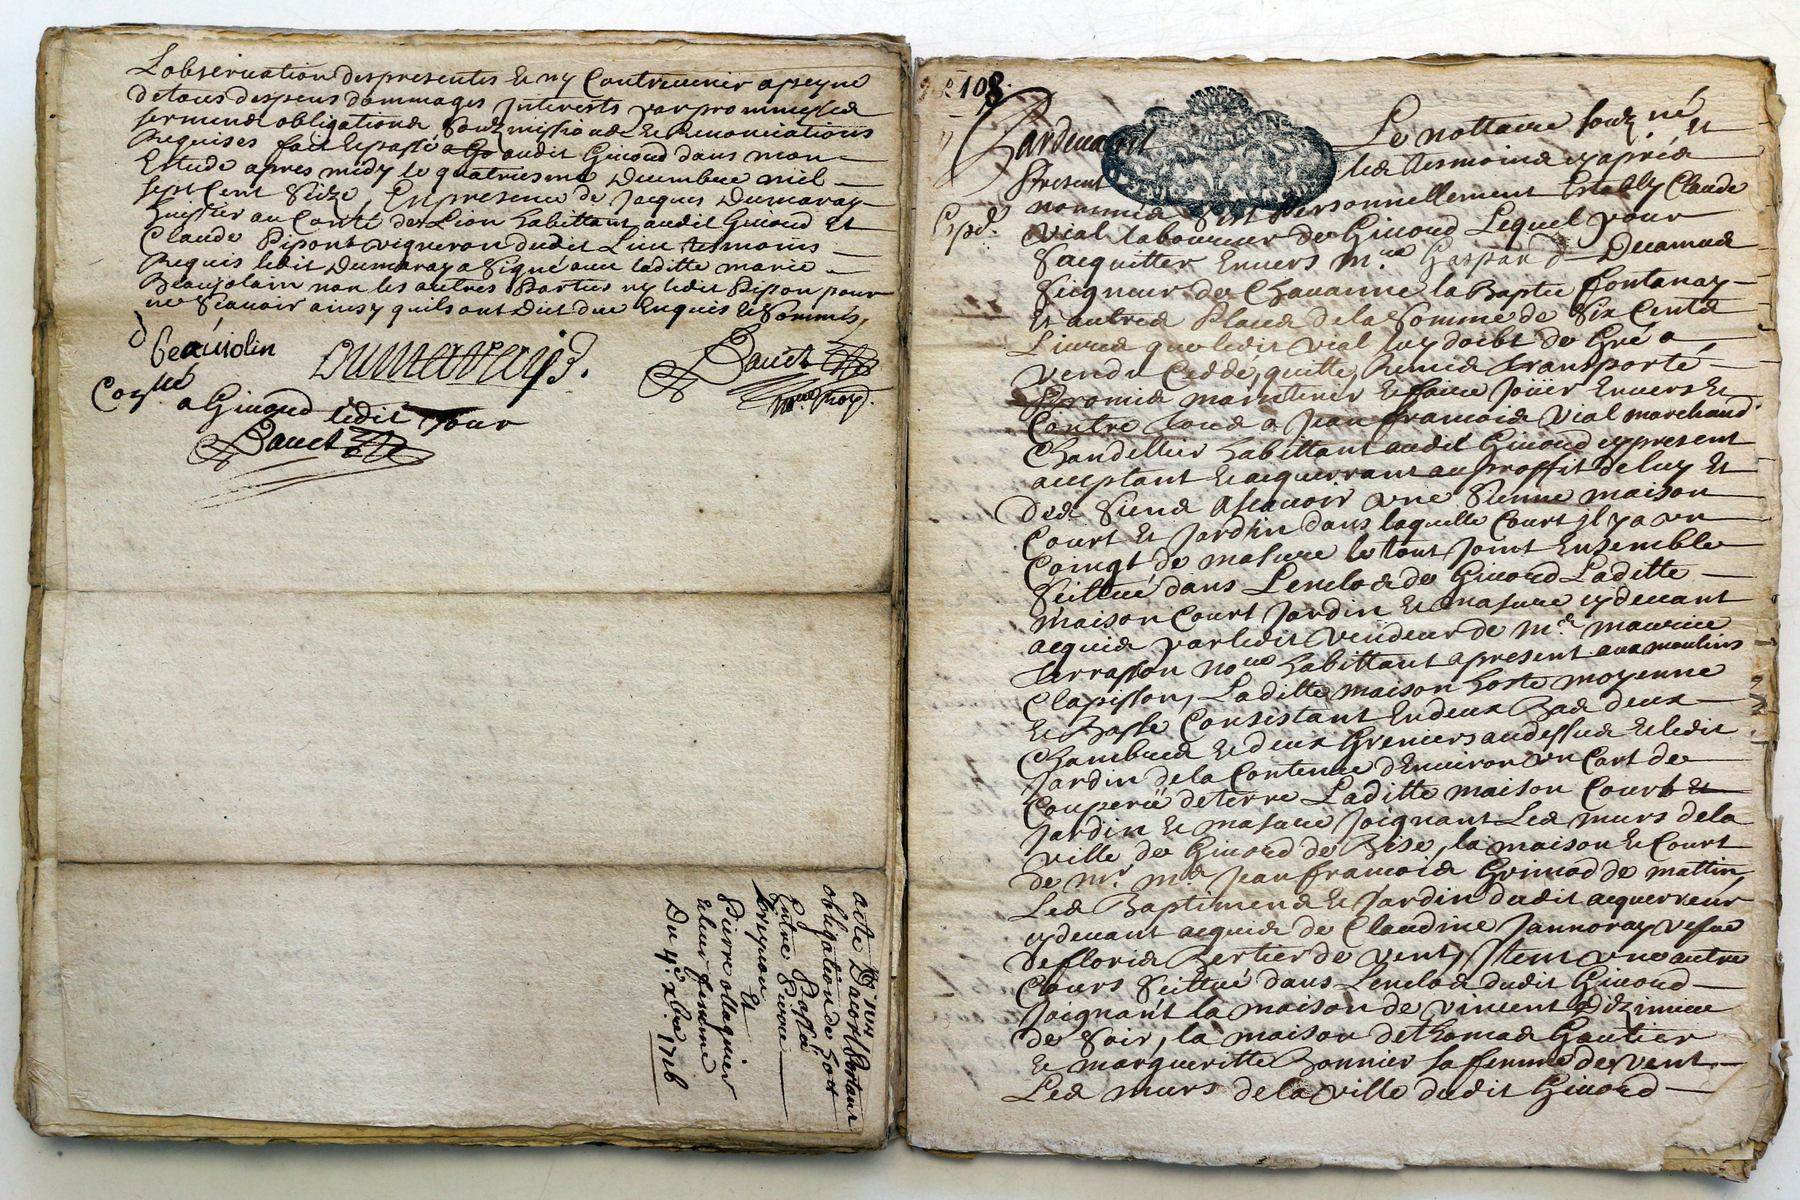 Lobseruation despresentes Et ny Contreuenir apeyne
detous despens dommages Interests par prommesses
serment obligations Soubmissions Et Renonciations
Requises fait Et passé audit Giuord dans mon
Estude apres midy le quatriesme Decembre mil
sept Cent Seize, En presence de Jacques Dumaray
huissier au Conté de Lion habittant audit Giuord Et
Claude Pipont vigneron dudit Lieu tesmoins
Requis ledit Dumaray a Signé auec laditte marie
Beaujolain non les autres Parties ny ledit Pipon pour
ne Scauoir ainsy quils ont Dict de ce Enquis Et Sommés,
beauiolin
Dumarays.
Bauet
No.re Roy.
Con.llé
a Giuord ledit Jour
Bauet
N° 104
acte Dacort Portant
obligation de
Passée
Entre Pierre
Et
Pierre ollaguier
et leur femme
Du 4.e xbre 1716
108
Le nottaire soubz.né
Et les tesmoins cy apres
nommés fut Personnellement Estably Claude
Vial laboureur de Giuord Lequel pour
Sacquitter Enuers M.re Gaspard
Seigneur de Chauanne la Baptie fontanay
Et autres Places de la Somme de Six Cents
Liures que ledit Vial luy doibt de Gré a
vendu Ceddé, quitté, Remis transporté
Promis maintenir Et faire Joüir Enuers Et
Contre tous a Jean francois Vial marchand
Chandellier habittant audit Giuord cy present
acceptant Et acquerrant au proffit de luy Et
Des Siens ascauoir vne Sienne maison
Court Et Jardin dans laquelle Court il y a vn
Coingt de masure le tout Joint Ensemble
Scittué dans Lenclos de Giuord Laditte
maison Court Jardin Et masure cy deuant
acquis par ledit vendeur de M.e maurice
terrasson no.re habittant apresent aux moulins
Clapisson, Laditte maison hoste moyenne
Et Basse Consistant En deux Bas deux
Chambres Et deux Greniers au dessus Et ledit
Jardin de la Contenue dEnuiron vn Cart de
Couperië de terre Laditte maison Court Et
Jardin Et masure Joignant Les murs de la
ville de Giuord de Bise, la maison Et Court
de Mr. M.e Jean francois Grimod de mattin,
Les Baptimens Et Jardin dudit acquerreur
cy deuant acquis de Claudine Jannoray vefue
de floris Bertier de vent, Item vne autre
Cours Scittué dans Lenclos dudit Giuord
Joignant la maison de vincent Dizimieu
de Soir, la maison de thomas Gautier
Et margueritte Bonnier sa femme de vent
Les murs de la ville dudit Giuord